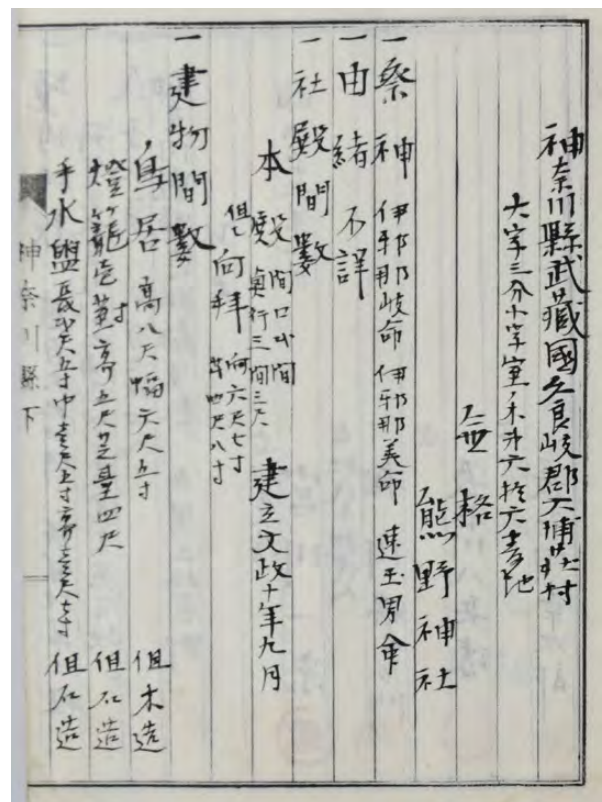 神奈川縣武藏國久良岐郡大浦壮村
大字三分小字室ノ木廾六拾六番地
無格
熊野神社
一祭神 伊邪那岐命 伊邪那美命 速玉男命
一由緒不詳
一社殿間數
本殿 間口弐間 奥行三間三尺 建立文政十年九月
但シ向拝 向六尺七寸 四尺八寸
一建物間數
鳥居 高八尺幅六尺五寸 但木造
燈籠壱 高五尺 四尺 但石造
手水盤長 尺五寸巾壱尺五寸高壱尺 寸 但石造
神奈川縣下